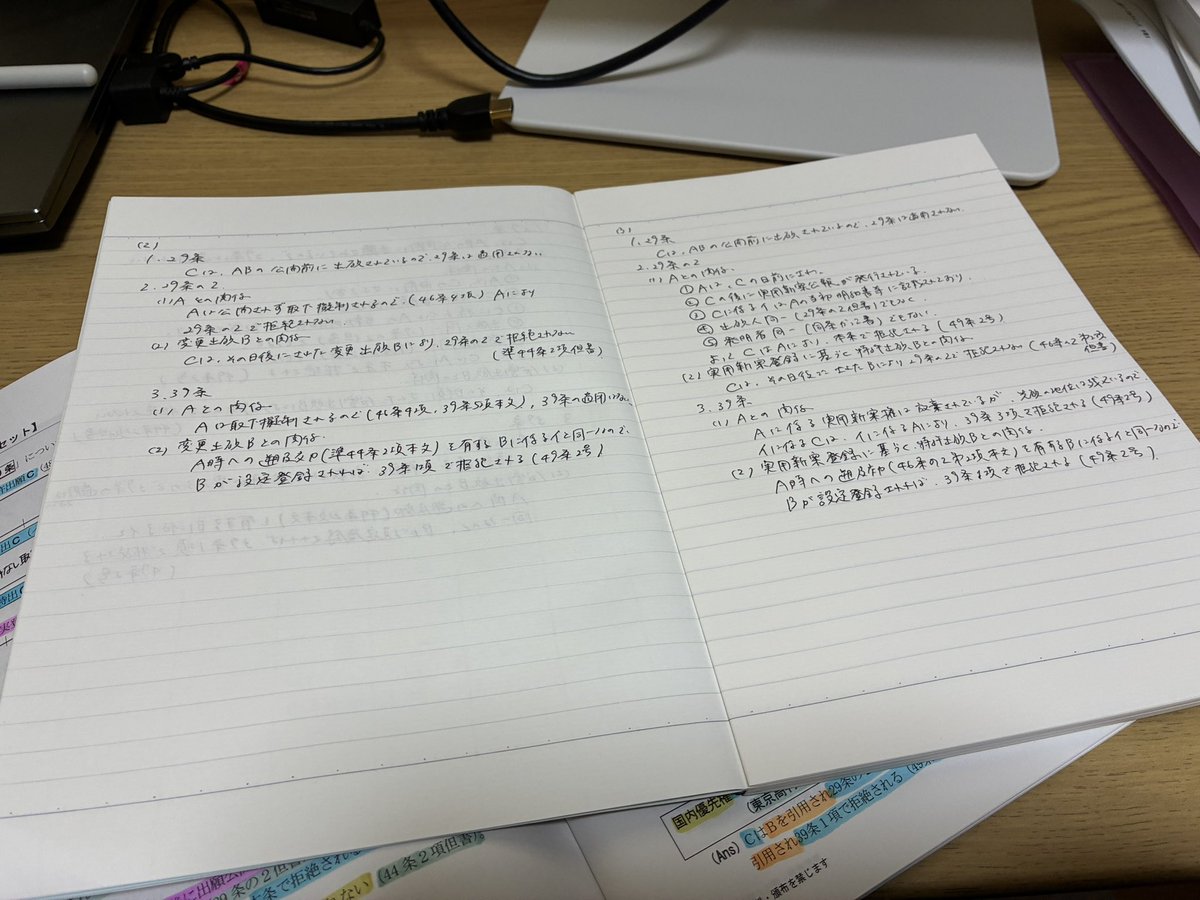 (2)
1. 29条
Cは、ABの公開前に出願されているので、29条は適用されない
2. 29条の2
(1) Aとの関係
Aは公開されず取下擬制されるので、(46条4項) Aにより
29条の2で拒絶されない。
(2) 変更出願Bとの関係
Cは、その日後にされた変更出願Bにより、29条の2で拒絶されない
(準44条2項但書)
3. 39条
(1) Aとの関係
Aは取下擬制されるので(46条4項、39条5項本文)、39条の適用はない
(2) 変更出願Bとの関係
A時への遡及効(準44条2項本文)を有するBに係るイと同一なので、
Bが設定登録されれば、39条1項で拒絶される(49条2号)
(3)
1. 29条
Cは、ABの公開前に出願されているので、29条は適用されない。
2. 29条の2
(1) Aとの関係
① Aは、Cの日前にされ、
② Cの後に実用新案公報が発行されている。
③ Cに係るイはAの当初明細書等に記載されており
④ 出願人同一(29条の2但書)でもなく
⑤ 発明者同一(同条かっこ書)でもない。
よってCはAにより、本条で拒絶される(49条2号)
(2) 実用新案登録に基づく特許出願Bとの関係
Cは、その日後にされたBにより29条の2で拒絶されない(46条の2第2項
但書)
3. 39条
(1) Aとの関係
Aに係る実用新案権は放棄されているが、先願の地位は残っているので、
イに係るCは、イに係るAにより、39条3項で拒絶される(49条2号)
(2) 実用新案登録に基づく特許出願Bとの関係
A時への遡及効(46条の2第2項本文)を有するBに係るイと同一なので
Bが設定登録されれば、39条1項で拒絶される(49条2号)
セット】
について
年出願C
なし取
時出C
国内優先権
(東京高
(Ans) CはBを引用され29条の2
引用され39条1項で拒絶される
・頒布を禁じます
に出願公
9条の2但書
条で拒絶される
ない (44条2項但書)。